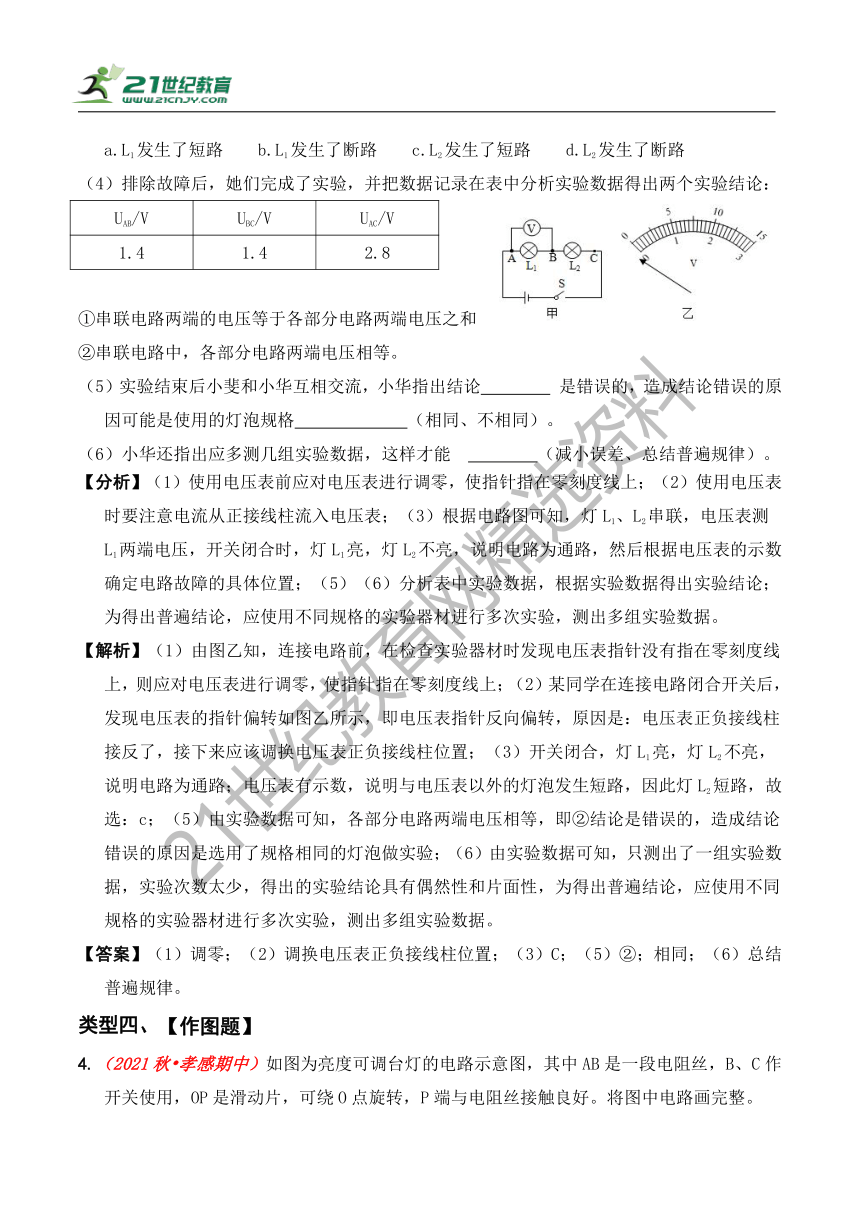 21世纪教育
WWW.21CNJY.COM
a.L₁发生了短路 b.L₁发生了断路 c.L₂发生了短路 d.L₂发生了断路
（4）排除故障后，她们完成了实验，并把数据记录在表中分析实验数据得出两个实验结论：
U_AB/V U_BC/V U_AC/V
1.4 1.4 2.8
V A L₁ B L₂ C S 甲
0 5 10 15 0 1 2 3 V 乙
①串联电路两端的电压等于各部分电路两端电压之和
②串联电路中，各部分电路两端电压相等。
（5）实验结束后小斐和小华互相交流，小华指出结论________ 是错误的，造成结论错误的原
因可能是使用的灯泡规格____________（相同、不相同）。
（6）小华还指出应多测几组实验数据，这样才能 ________（减小误差、总结普遍规律）。
【分析】（1）使用电压表前应对电压表进行调零，使指针指在零刻度线上；（2）使用电压表
时要注意电流从正接线柱流入电压表；（3）根据电路图可知，灯L₁、L₂串联，电压表测
L₁两端电压，开关闭合时，灯L₁亮，灯L₂不亮，说明电路为通路，然后根据电压表的示数
确定电路故障的具体位置；（5）（6）分析表中实验数据，根据实验数据得出实验结论；
为得出普遍结论，应使用不同规格的实验器材进行多次实验，测出多组实验数据。
【解析】（1）由图乙知，连接电路前，在检查实验器材时发现电压表指针没有指在零刻度线
上，则应对电压表进行调零，使指针指在零刻度线上；（2）某同学在连接电路闭合开关后，
发现电压表的指针偏转如图乙所示，即电压表指针反向偏转，原因是：电压表正负接线柱
接反了，接下来应该调换电压表正负接线柱位置；（3）开关闭合，灯L₁亮，灯L₂不亮，
说明电路为通路；电压表有示数，说明与电压表以外的灯泡发生短路，因此灯L₂短路，故
选：c；（5）由实验数据可知，各部分电路两端电压相等，即②结论是错误的，造成结论
错误的原因是选用了规格相同的灯泡做实验；（6）由实验数据可知，只测出了一组实验数
据，实验次数太少，得出的实验结论具有偶然性和片面性，为得出普遍结论，应使用不同
规格的实验器材进行多次实验，测出多组实验数据。
【答案】（1）调零；（2）调换电压表正负接线柱位置；（3）C；（5）②；相同；（6）总结
普遍规律。
类型四、【作图题】
4.（2021秋•孝感期中）如图为亮度可调台灯的电路示意图，其中AB是一段电阻丝，B、C作
开关使用，OP是滑动片，可绕O点旋转，P端与电阻丝接触良好。将图中电路画完整。
21世纪教育网精选资料